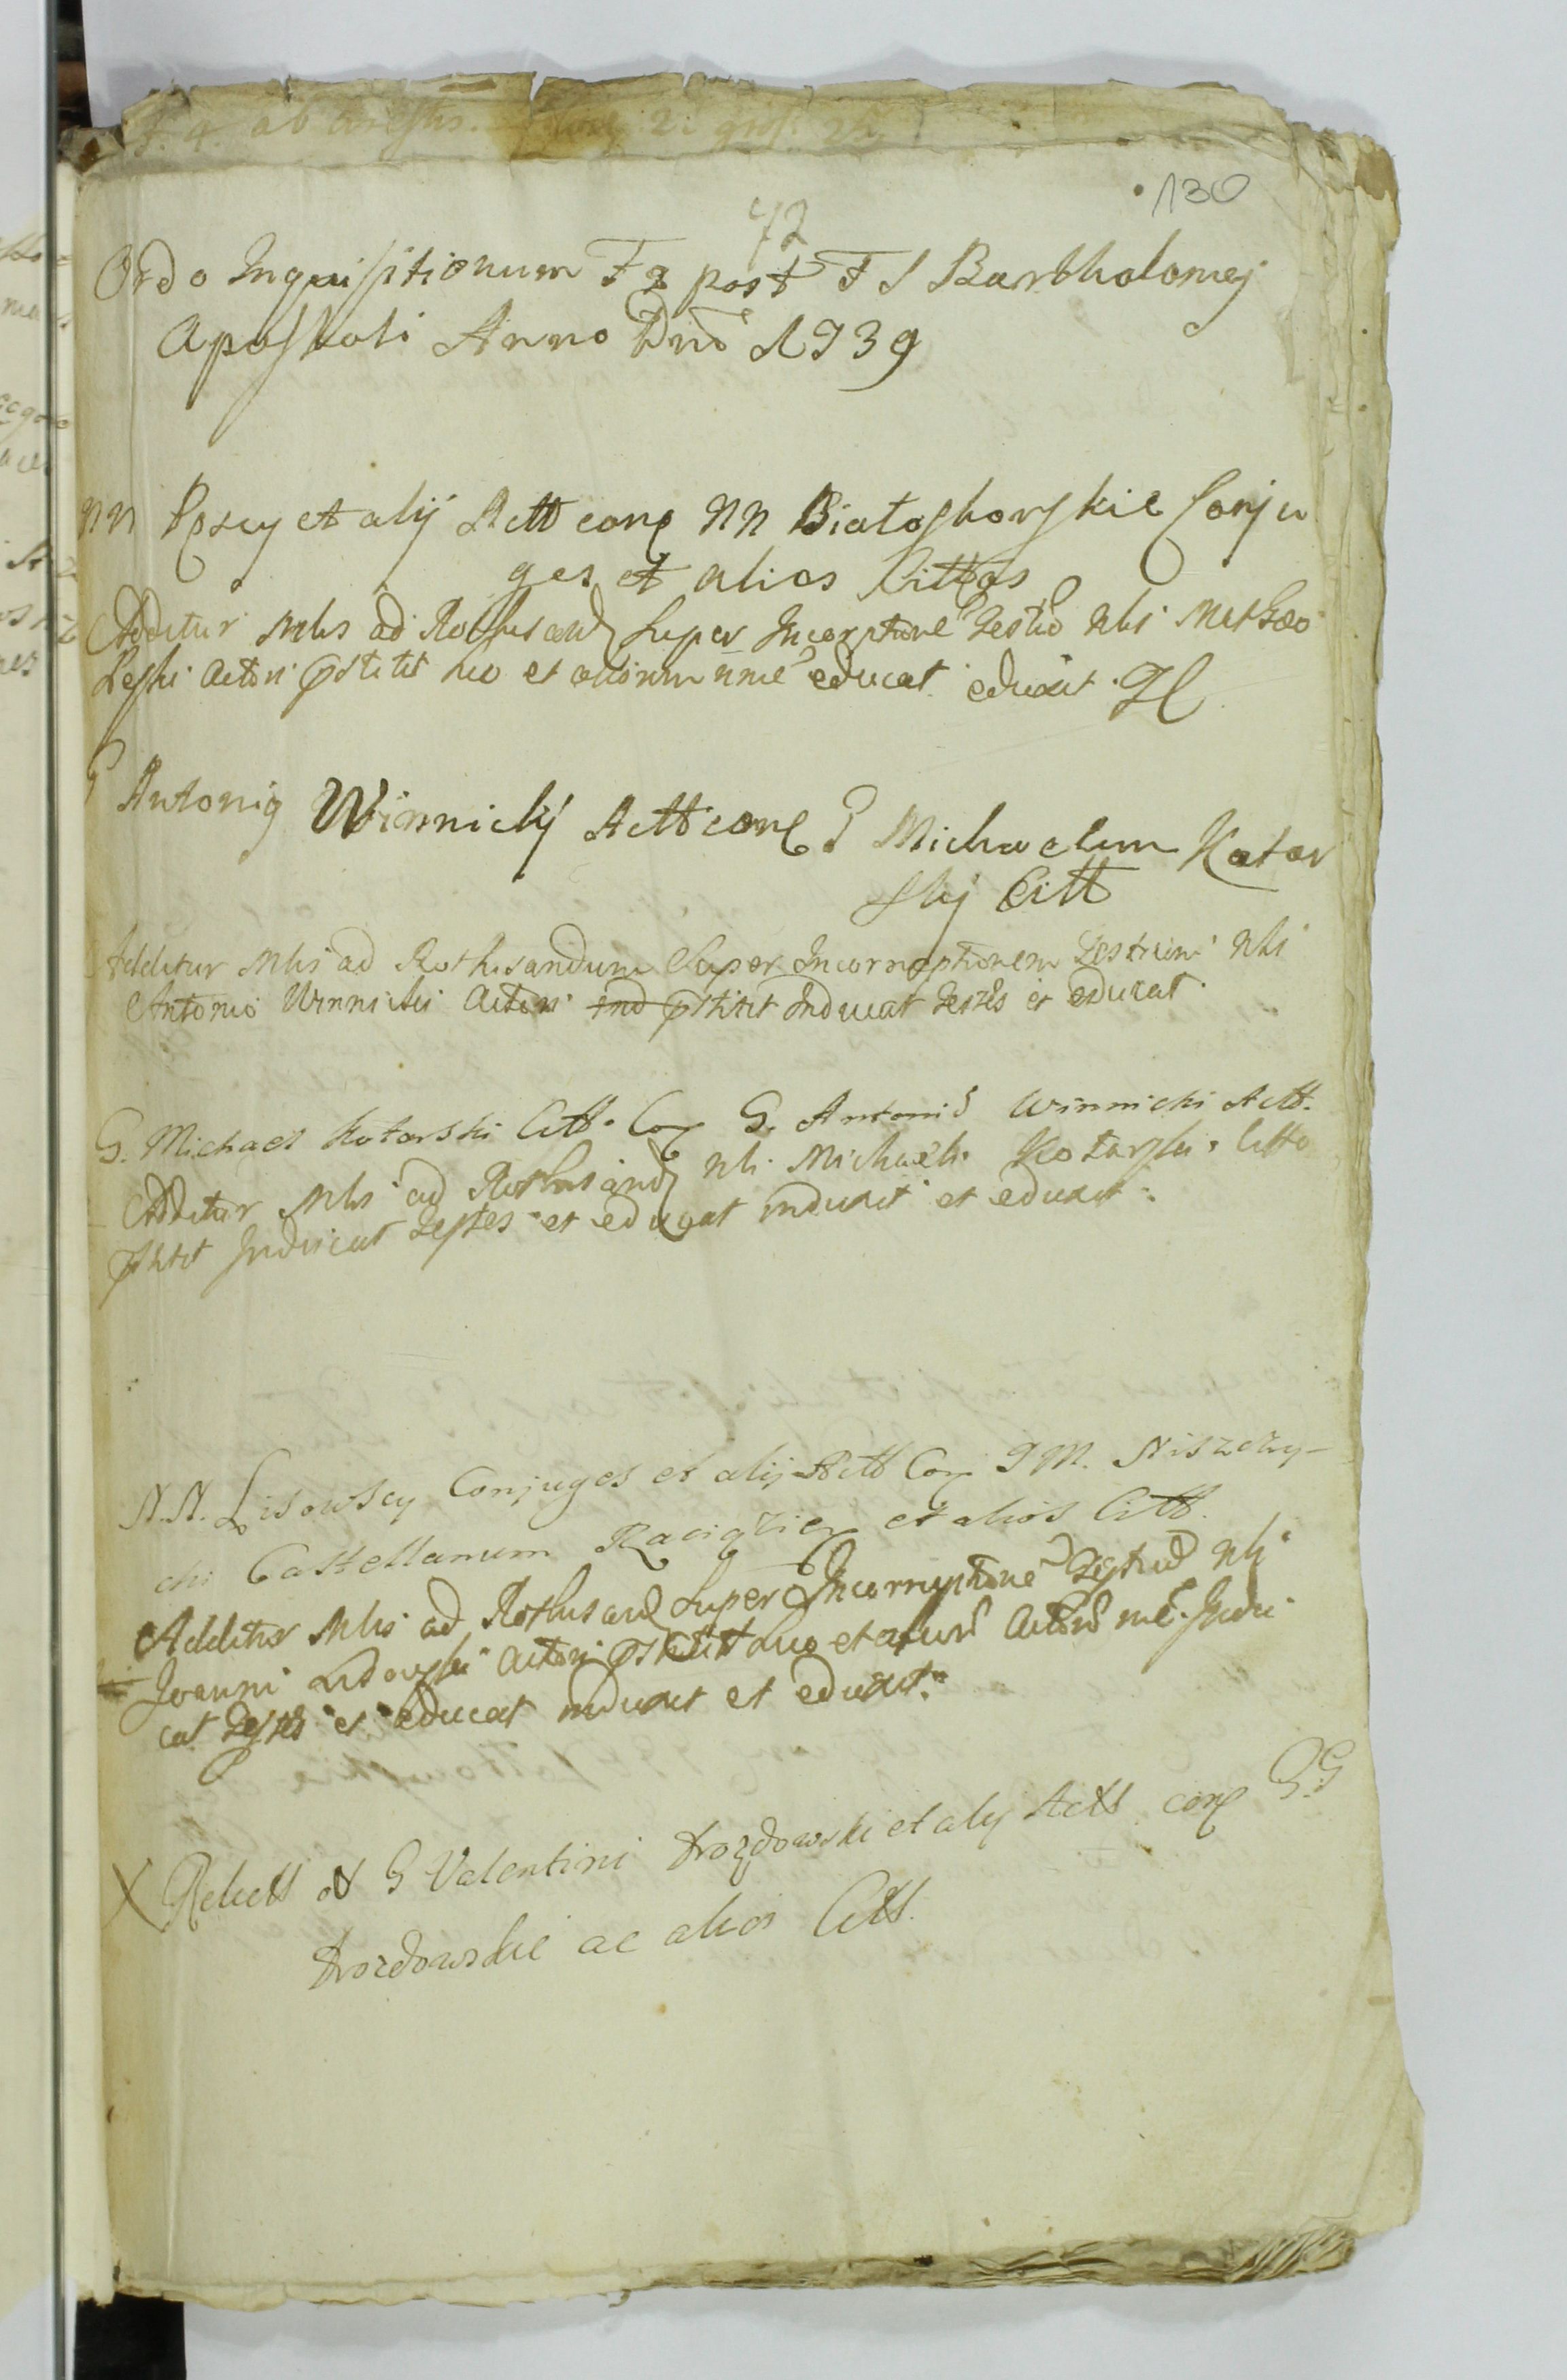 130
72
Ordo Inquisitionum F 2 post F S Bartholomej
Apostoli Anno Dni 1739
NN et alij Actt conq NN Białoskorskie Conju
ges et alios Cittos
Additur Mlis ad Rothisand Super Incorrptione Testiũ Nli
Leski Actori pstitit suo et aliorum nme educat eduxit
G Antonig Winnickij Actt conq G Michaelem Kotar
skij Citt
Additur Mlis ad Rothisandum Super Incorruptionem Testium Nli
Antonio Winnicki Actori ind pstitit Inducat Testes et educat
G. Michael Kotarski Citt. Con G. Antoniũ Winnicki Actt.
Additur Mlis ad Rothisand Nli Michaeli Kotarski Citto
pstitit Inducat Testes et educat induxit et eduxit
N.N. Lisowscy Conjuges et alij Actt Con G M. Niszczy-
cki Castellanum Raciąziem et alios Citt.
Additur Mlis ad Rothisand Super Incorruptione Testiũ Nli
Joanni Lisowski Actori pstitit suo et aliorũ Actorũ nme Indu-
cat Testes et educat induxit et eduxit
X G Valentini Drozdowski et alij Actt conq G.G
Drozdowskie ac alios Citt.